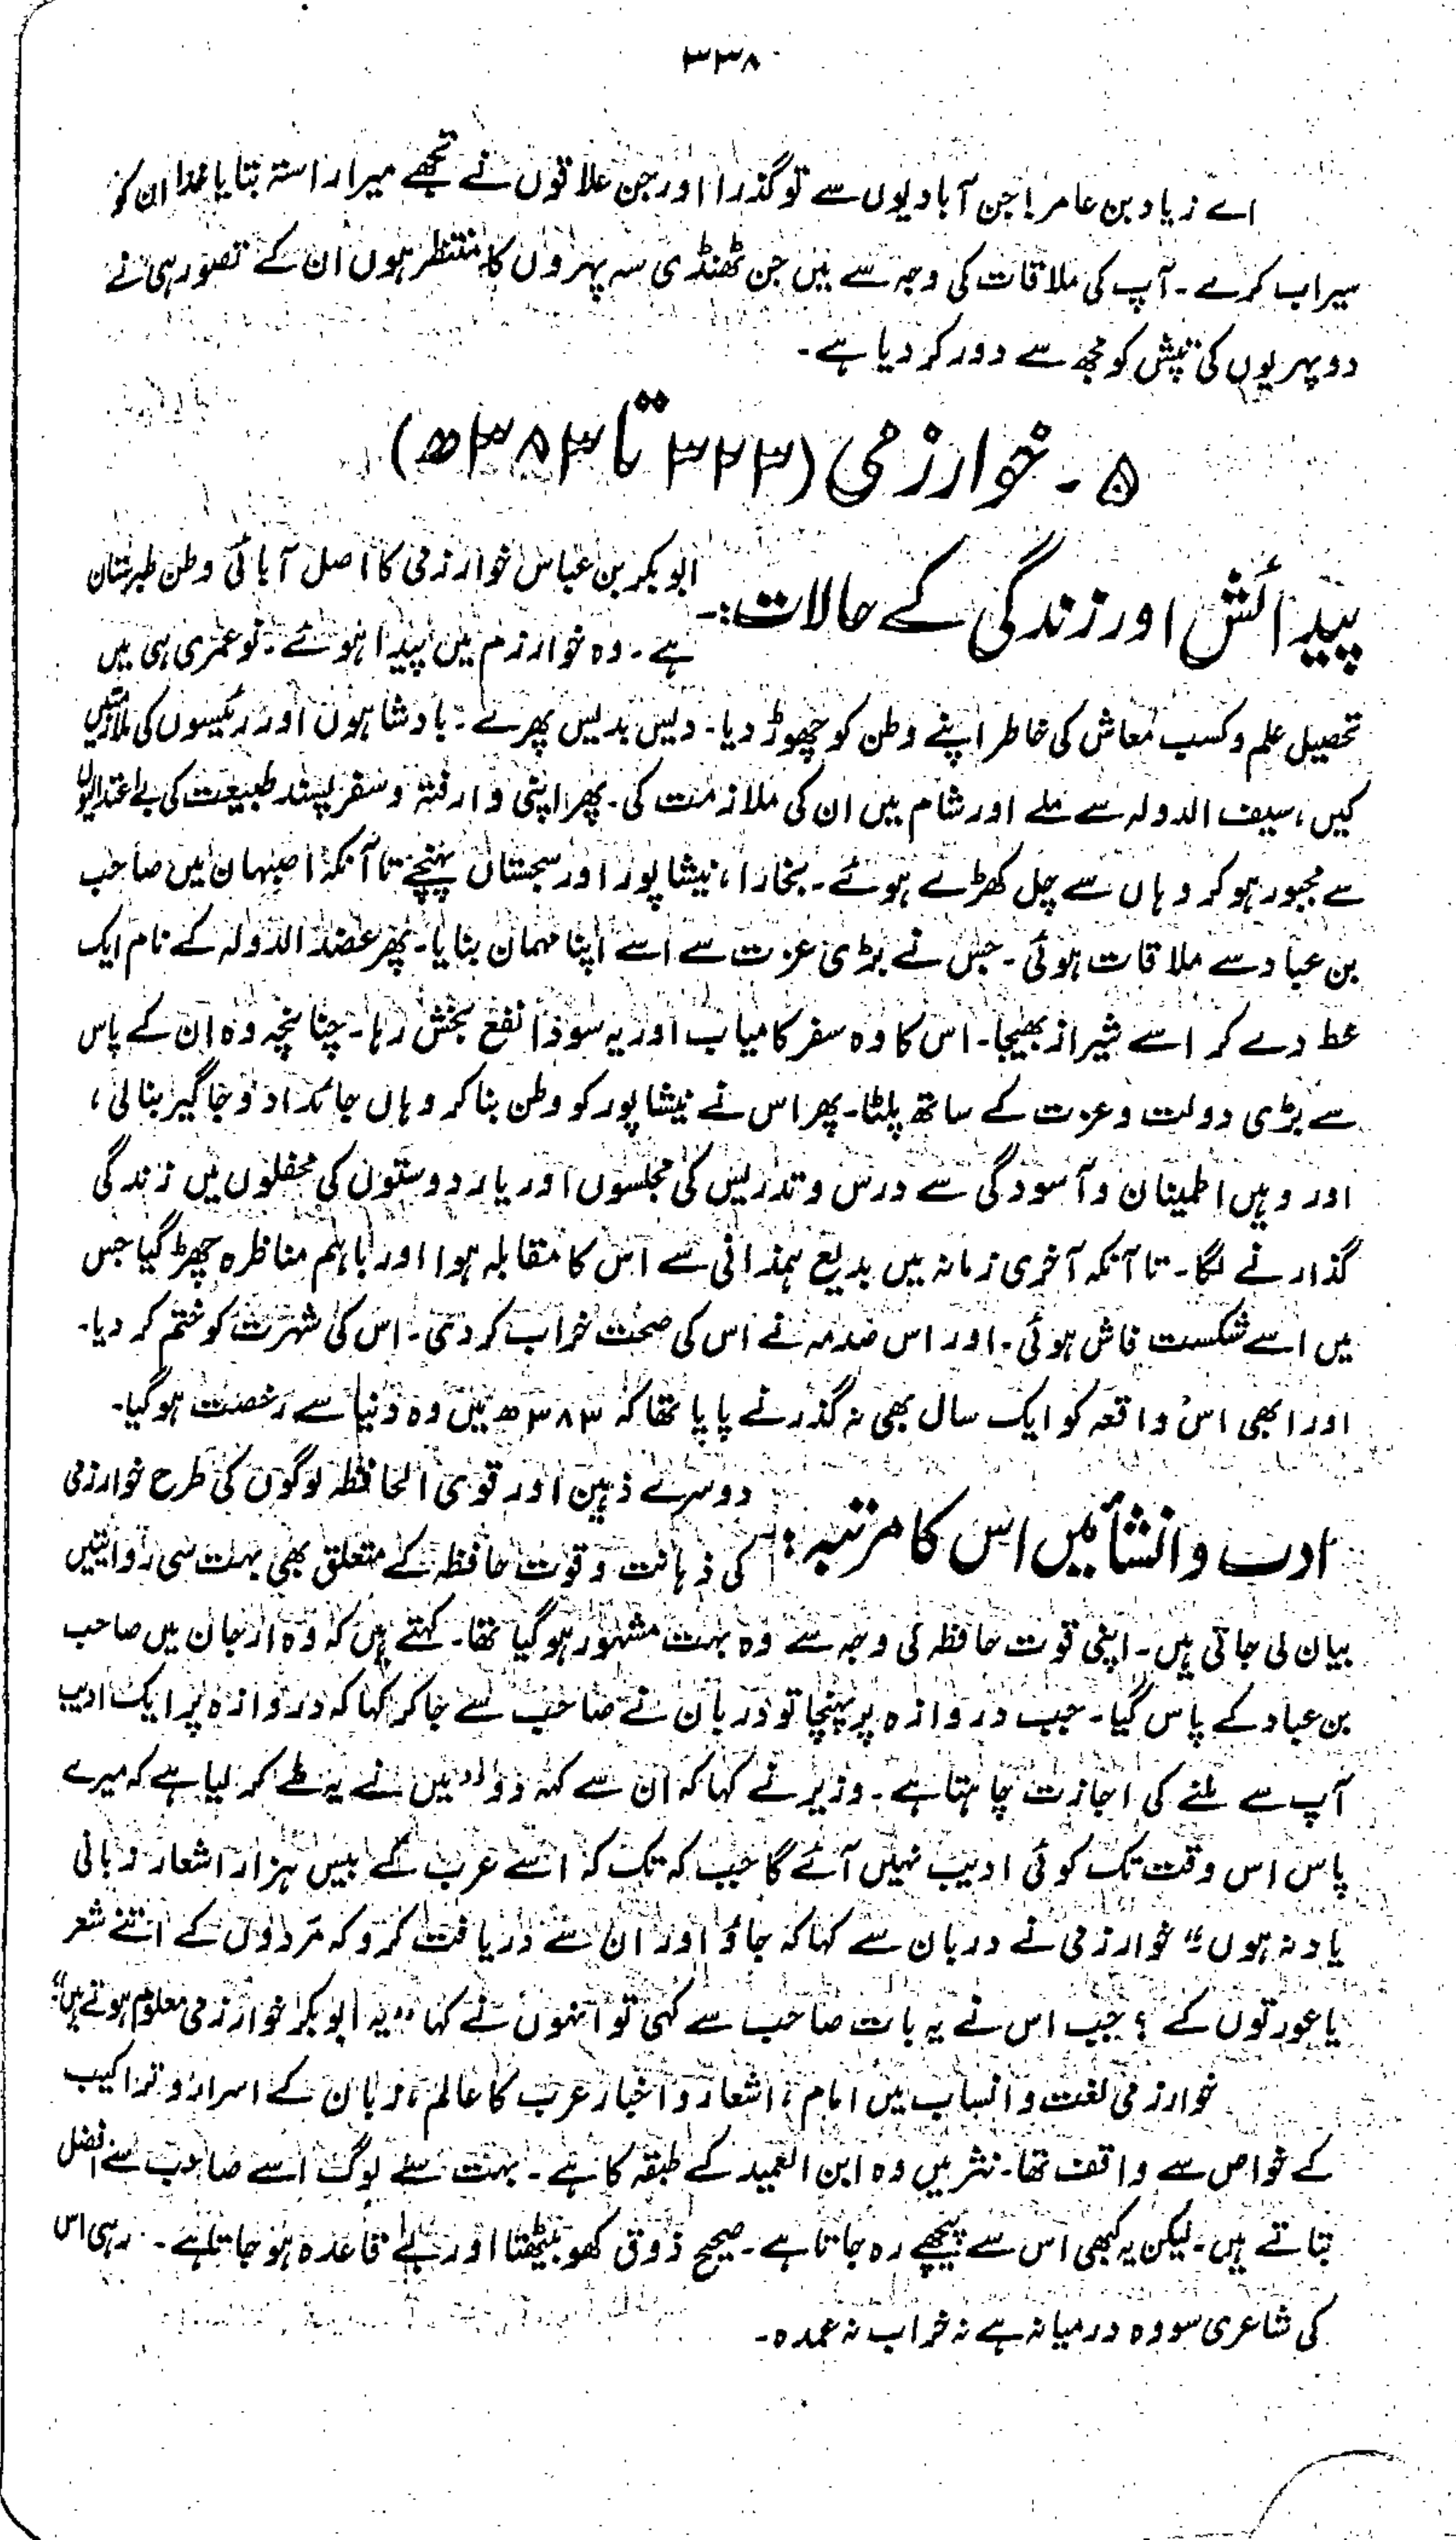 ۳۳۸
اے زیاد بن عامر! جن آبادیوں سے تو گذرا اور جن علاقوں نے تجھے میرا راستہ بتایا خدا ان کو
سیراب کرے۔ آپ کی ملاقات کی وجہ سے میں جن ٹھنڈی سہ پہروں کا منتظر ہوں ان کے تصور ہی نے
دوپہریوں کی تپش کو مجھ سے دور کر دیا ہے۔
۵۔ خوارزمی (۳۲۳ تا ۳۸۳ھ)
پیدائش اور زندگی کے حالات:۔ ابو بکر بن عباس خوارزمی کا اصل آبائی وطن طبرستان
ہے۔ وہ خوارزم میں پیدا ہوئے۔ نو عمری ہی میں
تحصیل علم و کسب معاش کی خاطر اپنے وطن کو چھوڑ دیا۔ دیس بدیس پھرے۔ بادشاہوں اور رئیسوں کی ملازمتیں
کیں، سیف الدولہ سے ملے اور شام میں ان کی ملازمت کی۔ پھر اپنی وارفتہ و سفر پسند طبیعت کی بے اعتدالیوں
سے مجبور ہو کر وہاں سے چل کھڑے ہوئے۔ بخارا، نیشاپور اور سجستان پہنچے تا آنکہ اصبہان میں صاحب
بن عباد سے ملاقات ہوئی۔ جس نے بڑی عزت سے اسے اپنا مہمان بنایا۔ پھر عضد الدولہ کے نام ایک
خط دے کر اسے شیراز بھیجا۔ اس کا وہ سفر کامیاب اور یہ سودا نفع بخش رہا۔ چنانچہ وہ ان کے پاس
سے بڑی دولت و عزت کے ساتھ پلٹا۔ پھر اس نے نیشاپور کو وطن بنا کر وہاں جائداد و جاگیر بنا لی،
اور وہیں اطمینان و آسودگی سے درس و تدریس کی مجلسوں اور یار دوستوں کی محفلوں میں زندگی
گذارنے لگا۔ تا آنکہ آخری زمانہ میں بدیع ہمذانی سے اس کا مقابلہ ہوا اور باہم مناظرہ چھڑ گیا جس
میں اسے شکست فاش ہوئی۔ اور اس صدمہ نے اس کی صحت خراب کر دی۔ اس کی شہرت کو ختم کر دیا۔
اور ابھی اس واقعہ کو ایک سال بھی نہ گذرنے پایا تھا کہ ۳۸۳ھ میں وہ دنیا سے رخصت ہو گیا۔
ادب و انشأ میں اس کا مرتبہ:۔ دوسرے ذہین اور قوی الحافظہ لوگوں کی طرح خوارزمی
کی ذہانت و قوت حافظہ کے متعلق بھی بہت سی روائتیں
بیان کی جاتی ہیں۔ اپنی قوت حافظہ کی وجہ سے وہ بہت مشہور ہو گیا تھا۔ کہتے ہیں کہ وہ ارجان میں صاحب
بن عباد کے پاس گیا۔ جب دروازہ پر پہنچا تو دربان نے صاحب سے جا کر کہا کہ دروازہ پر ایک ادیب
آپ سے ملنے کی اجازت چاہتا ہے۔ وزیر نے کہا کہ ان سے کہہ دو ”میں نے یہ طے کر لیا ہے کہ میرے
پاس اس وقت تک کوئی ادیب نہیں آئے گا جب کہ تک کہ اسے عرب کے بیس ہزار اشعار زبانی
یاد نہ ہوں“ خوارزمی نے دربان سے کہا کہ جاؤ اور ان سے دریافت کرو کہ مردوں کے اتنے شعر
یا عورتوں کے؟ جب اس نے یہ بات صاحب سے کہی تو انہوں نے کہا ”یہ ابو بکر خوارزمی معلوم ہوتے ہیں“
خوارزمی لغت و انساب میں امام، اشعار و اخبار عرب کا عالم، زبان کے اسرار و تراکیب
کے خواص سے واقف تھا۔ نثر میں وہ ابن العمید کے طبقہ کا ہے۔ بہت سے لوگ اسے صاحب سے افضل
بتاتے ہیں۔ لیکن یہ کبھی اس سے پیچھے رہ جاتا ہے۔ صحیح ذوق کھو بیٹھتا اور بے قاعدہ ہو جاتا ہے۔ رہی اس
کی شاعری سو وہ درمیانہ ہے نہ خراب نہ عمدہ۔